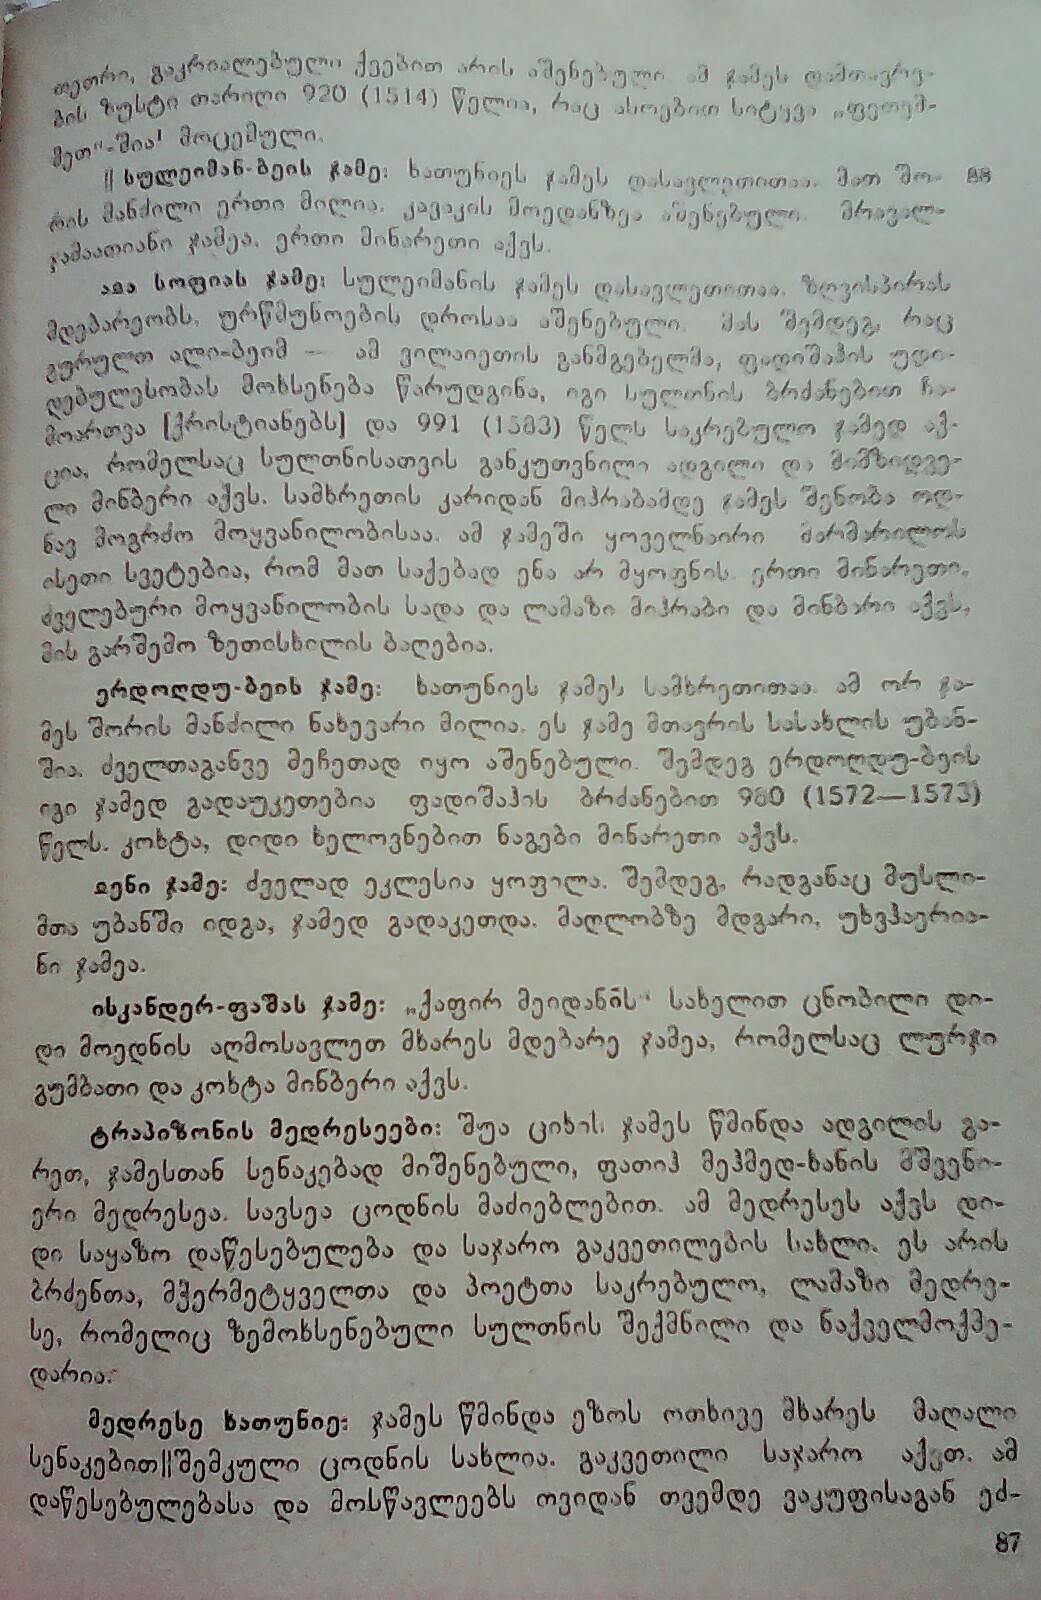 თეთრი, გაკრიალებული ქვებით არის აშენებული. ამ ჯამეს დამთავრე-
ბის ზუსტი თარიღი 920 (1514) წელია, რაც ასოებით სიტყვა „ფეთემ-
მეთ“-შია¹ მოცემული.
|| სულეიმან-ბეის ჯამე: ხათუნიეს ჯამეს დასავლეთითაა. მათ შო- 88
რის მანძილი ერთი მილია. კავაკის მოედანზეა აშენებული. მრავალ-
ჯამაათიანი ჯამეა. ერთი მინარეთი აქვს.
აჲა სოფიას ჯამე: სულეიმანის ჯამეს დასავლეთითაა. ზღვისპირას
მდებარეობს. ურწმუნოების დროსაა აშენებული. მას შემდეგ, რაც
გურულთ ალი-ბეიმ — ამ ვილაიეთის განმგებელმა, ფადიშაჰის უდი-
დებულესობას მოხსენება წარუდგინა, იგი სულთნის ბრძანებით ჩა-
მოართვა [ქრისტიანებს] და 991 (1583) წელს საკრებულო ჯამედ აქ-
ცია, რომელსაც სულთნისათვის განკუთვნილი ადგილი და მიმზიდვე-
ლი მინბერი აქვს. სამხრეთის კარიდან მიჰრაბამდე ჯამეს შენობა ოდ-
ნავ მოგრძო მოყვანილობისაა. ამ ჯამეში ყოველნაირი მარმარილოს
ისეთი სვეტებია, რომ მათ საქებად ენა არ მყოფნის. ერთი მინარეთი,
ძველებური მოყვანილობის სადა და ლამაზი მიჰრაბი და მინბარი აქვს,
მის გარშემო ზეთისხილის ბაღებია.
ერდოღდუ-ბეის ჯამე: ხათუნიეს ჯამეს სამხრეთითაა. ამ ორ ჯა-
მეს შორის მანძილი ნახევარი მილია. ეს ჯამე მთავრის სასახლის უბან-
შია. ძველთაგანვე მეჩეთად იყო აშენებული. შემდეგ ერდოღდუ-ბეის
იგი ჯამედ გადაუკეთებია ფადიშაჰის ბრძანებით 980 (1572—1573)
წელს. კოხტა, დიდი ხელოვნებით ნაგები მინარეთი აქვს.
ჲენი ჯამე: ძველად ეკლესია ყოფილა. შემდეგ, რადგანაც მუსლი-
მთა უბანში იდგა, ჯამედ გადაკეთდა. მაღლობზე მდგარი, უხვჰაერია-
ნი ჯამეა.
ისკანდერ-ფაშას ჯამე: „ქაფირ მეიდანის“ სახელით ცნობილი დი-
დი მოედნის აღმოსავლეთ მხარეს მდებარე ჯამეა, რომელსაც ლურჯი
გუმბათი და კოხტა მინბერი აქვს.
ტრაპიზონის მედრესეები: შუა ციხის ჯამეს წმინდა ადგილის გა-
რეთ, ჯამესთან სენაკებად მიშენებული, ფათიჰ მეჰმედ-ხანის მშვენი-
ერი მედრესეა. სავსეა ცოდნის მაძიებლებით. ამ მედრესეს აქვს დი-
დი საყაზო დაწესებულება და საჯარო გაკვეთილების სახლი. ეს არის
ბრძენთა, მჭერმეტყველთა და პოეტთა საკრებულო, ლამაზი მედრე-
სე, რომელიც ზემოხსენებული სულთნის შექმნილი და ნაქველმოქმე-
დარია.
მედრესე ხათუნიე: ჯამეს წმინდა ეზოს ოთხივე მხარეს მაღალი
სენაკებით||შემკული ცოდნის სახლია. გაკვეთილი საჯარო აქვთ. ამ
დაწესებულებასა და მოსწავლეებს თვიდან თვემდე ვაკუფისაგან ეძ-
87